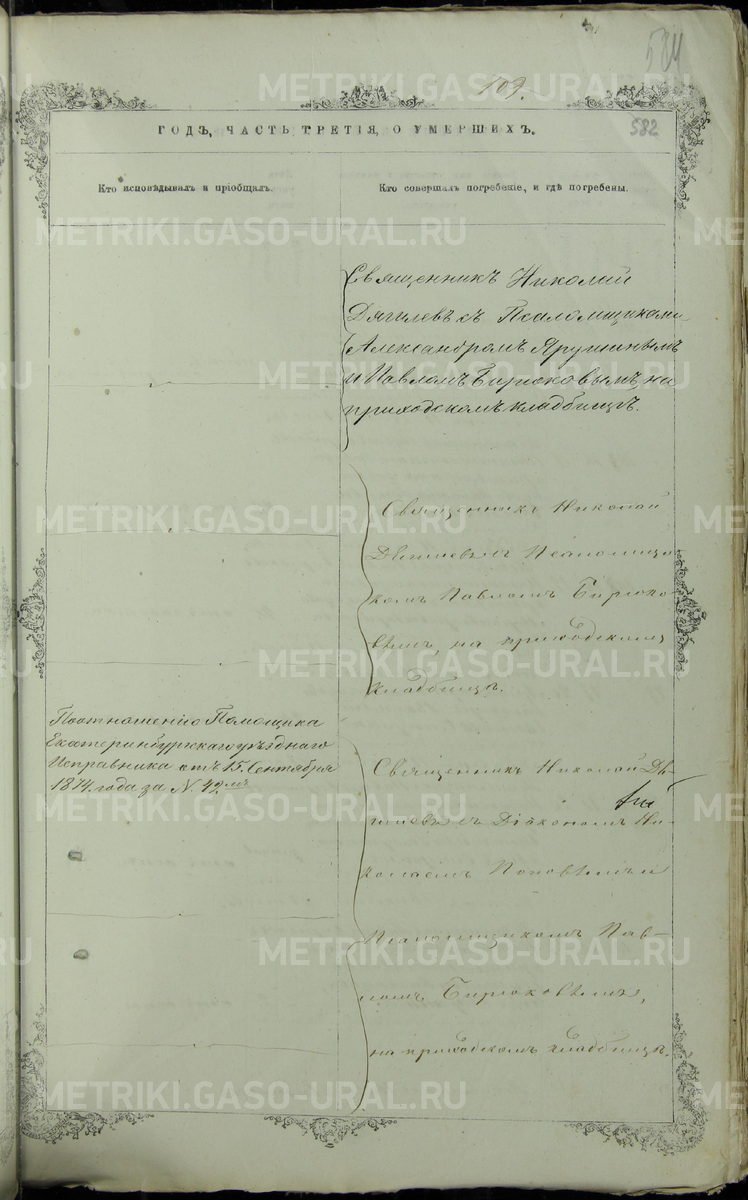 584
109.
ГОДЪ, ЧАСТЬ ТРЕТІЯ, О УМЕРШИХЪ.
582
Кто исповѣдывалъ и пріобщалъ.
Кто совершалъ погребеніе, и гдѣ погребены.
Священникъ Николай
Дягилевъ съ Псаломщиками
Александромъ Ярушинымъ
и Павломъ Бирюковымъ, на
приходскомъ кладбищѣ.
Священникъ Николай
Дягилевъ съ Псаломщи-
комъ Павломъ Бирюко-
вымъ, на приходскомъ
кладбищѣ.
По отношенію Помощика
Екатеринбурккаго уѣзднаго
Исправника отъ 15. Сентября
1874. года за № 49.мъ
Священникъ Николай Дя-
гилевъ съ Діакономъ Ни-
колаемъ Поповымъ и
Псаломщикомъ Пав-
ломъ Бирюковымъ,
на приходскомъ кладбищѣ.
METRIKI.GASO-URAL.RU